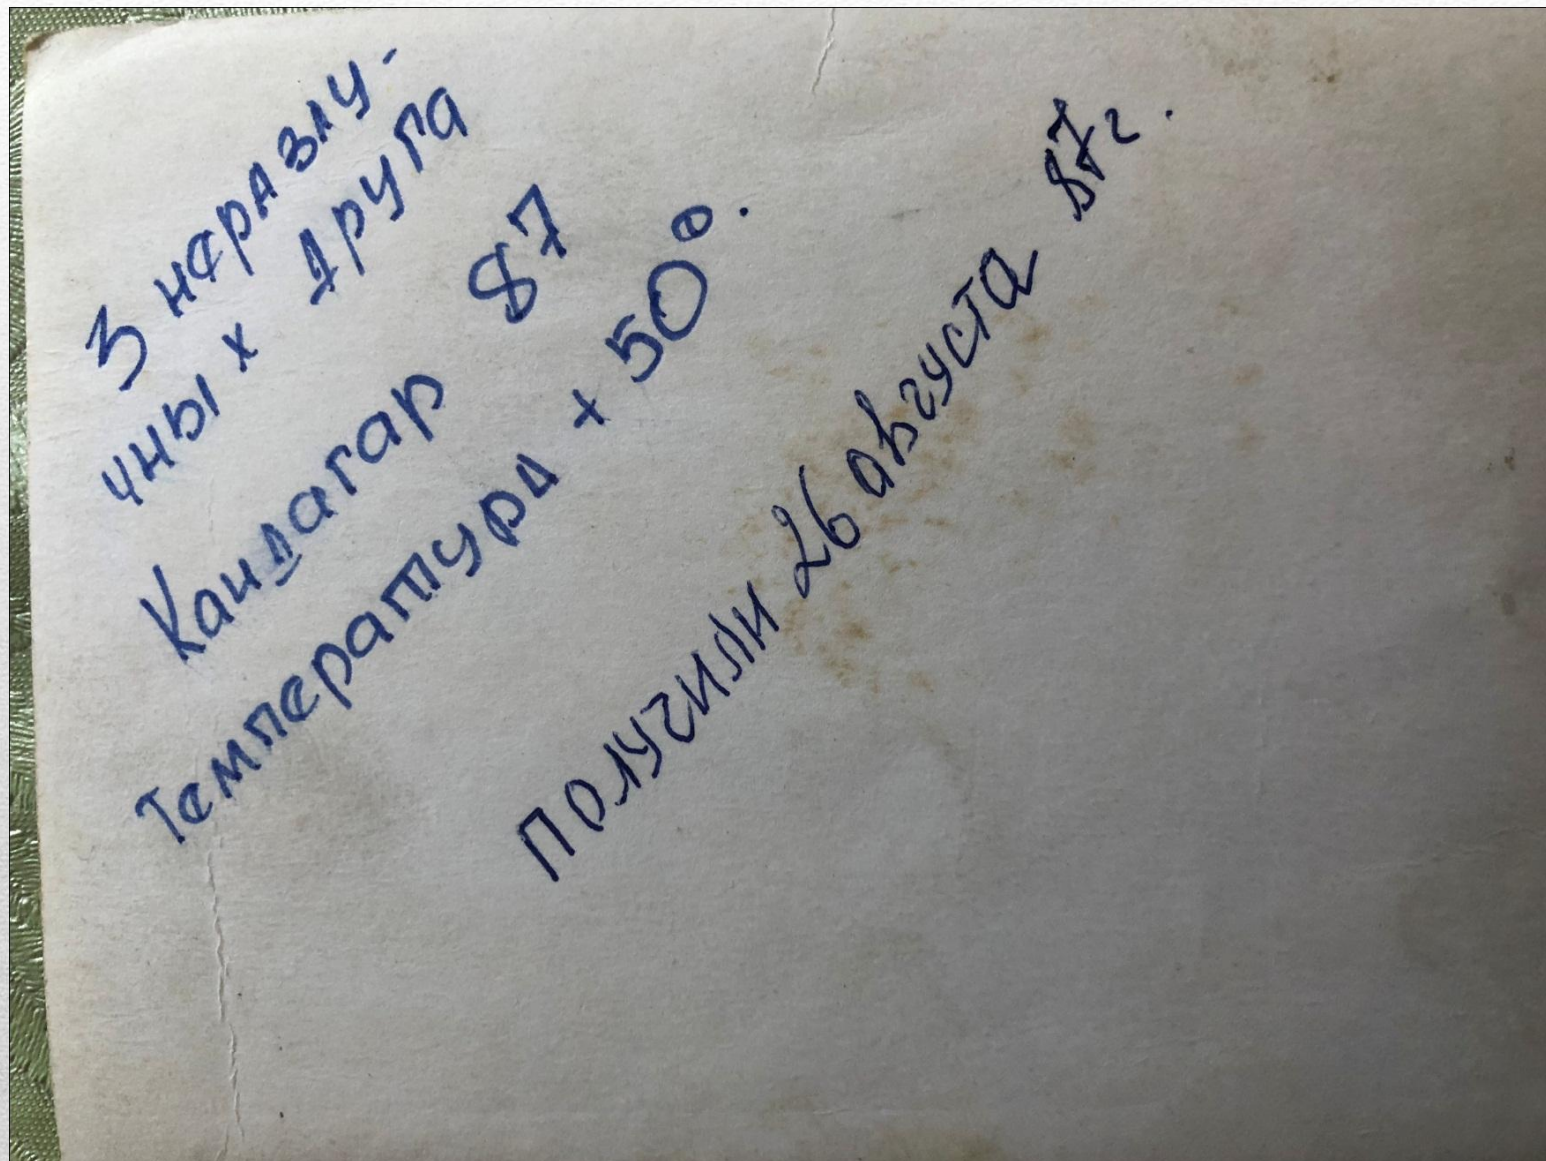 3 неразлу-
чных друга
Кандагар 87
Температура + 50°.
Получили 26 августа 87г.